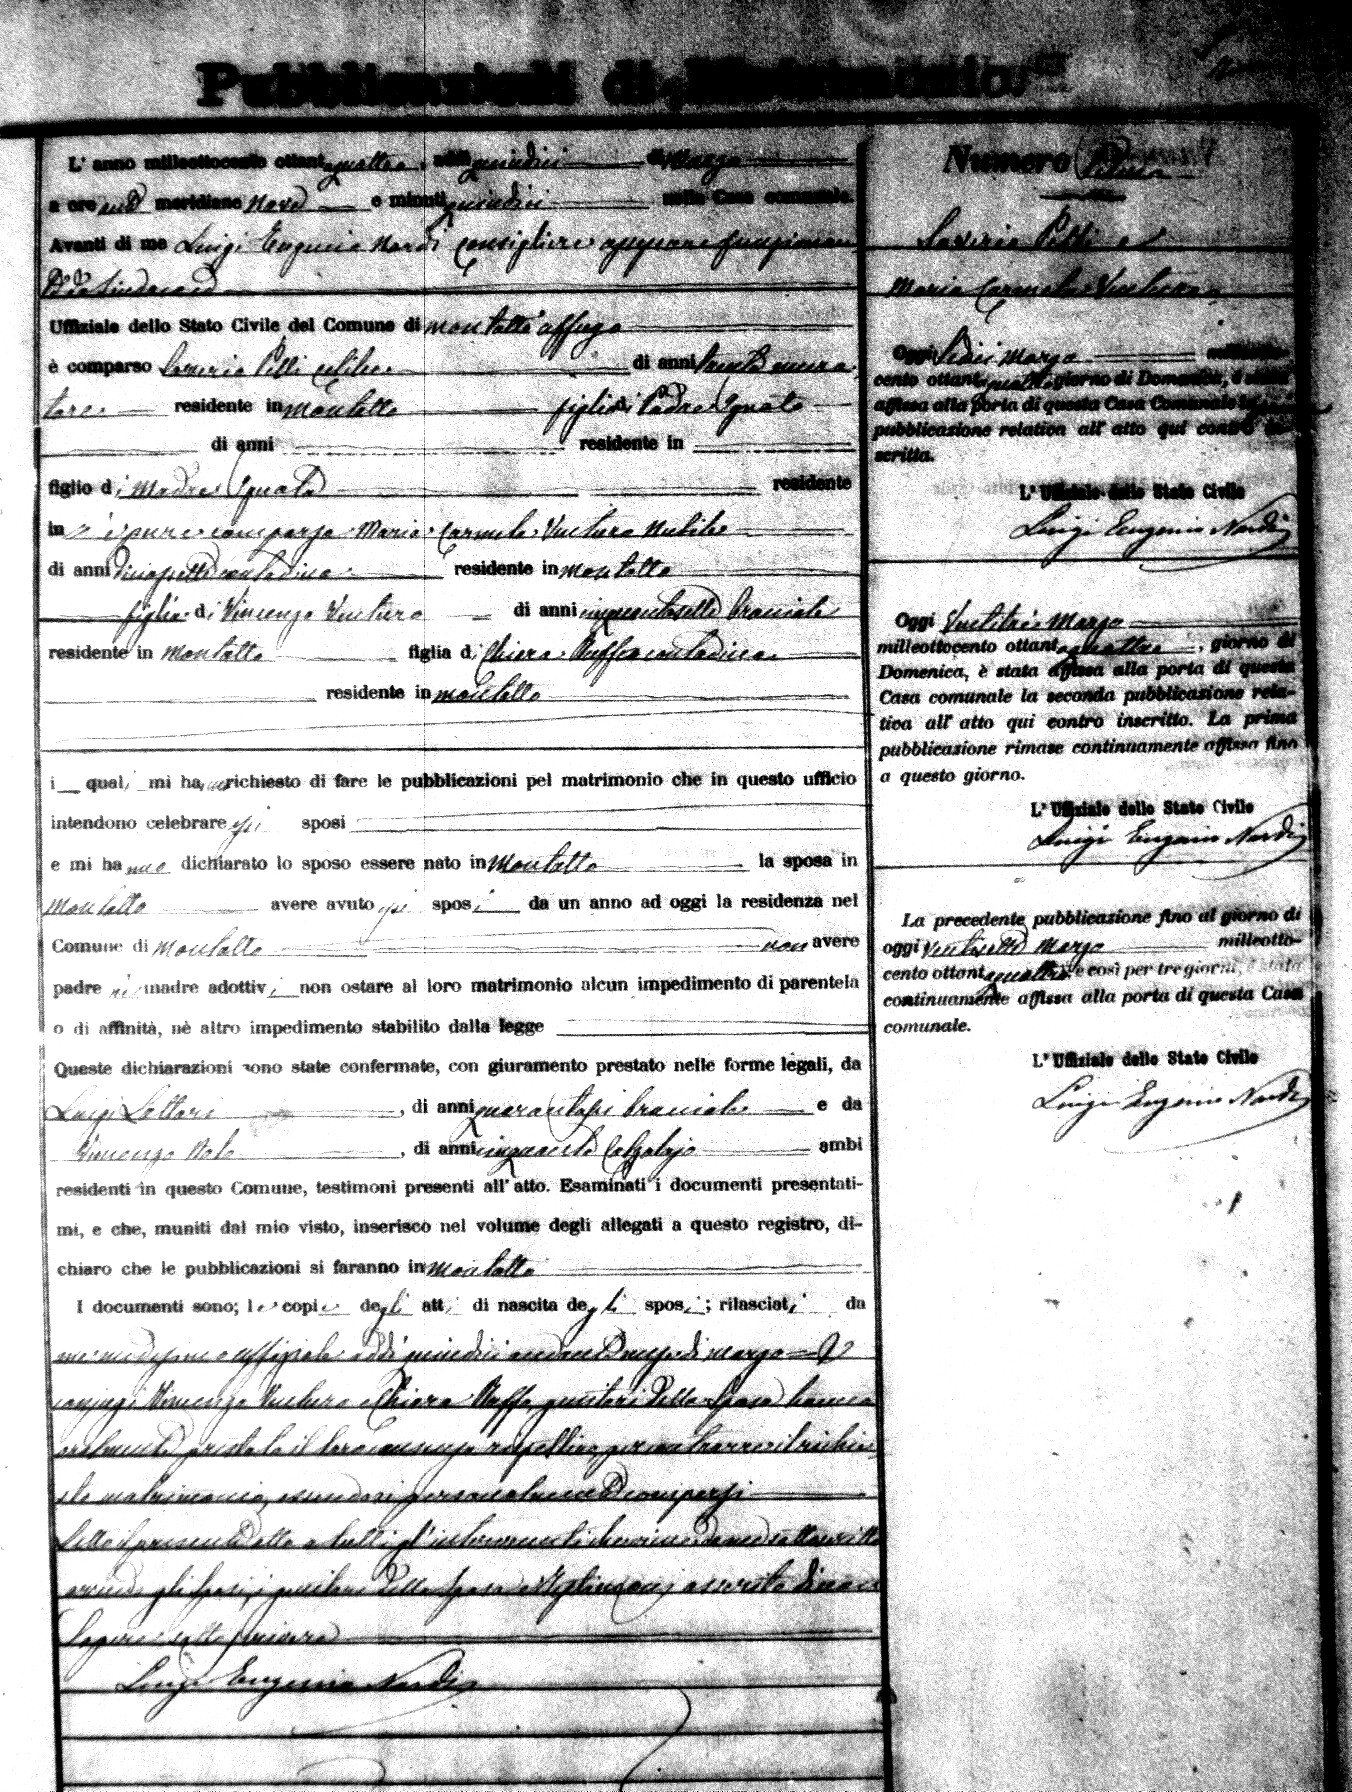 Pubblicazioni di Matrimonio
L' anno milleottocento ottantaquattro, addì quindici di Marzo
a ore meridiane nove e minuti quindici nella Casa comunale.
Avanti di me Luigi Eugenio Nardi Consigliere
Uffiziale dello Stato Civile del Comune di Montalto Uffugo
è comparso Saverio Pilli celibe di anni trenta
residente in Montalto figlio di Padre Ignoto
di anni residente in
figlio di Madre Ignota residente
in è pure comparsa Maria Carmela Ventura Nubile
di anni diciassette contadina residente in Montalto
figlia di Vincenzo Ventura di anni cinquantasette bracciale
residente in Montalto figlia di Chiara Ruffo contadina
residente in Montalto
i quali mi hanno richiesto di fare le pubblicazioni pel matrimonio che in questo ufficio
intendono celebrare essi sposi
e mi hanno dichiarato lo sposo essere nato in Montalto la sposa in
Montalto avere avuto essi sposi da un anno ad oggi la residenza nel
Comune di Montalto non avere
padre nè madre adottivi non ostare al loro matrimonio alcun impedimento di parentela
o di affinità, nè altro impedimento stabilito dalla legge
Queste dichiarazioni sono state confermate, con giuramento prestato nelle forme legali, da
Luigi Settari, di anni bracciale e da
Vincenzo, di anni cinquanta Calzolajo ambi
residenti in questo Comune, testimoni presenti all' atto. Esaminati i documenti presentati-
mi, e che, muniti dal mio visto, inserisco nel volume degli allegati a questo registro, di-
chiaro che le pubblicazioni si faranno in Montalto
I documenti sono; le copie degli atti di nascita degli sposi; rilasciati da
me medesimo uffiziale addì quindici andante mese di marzo
coniugi Vincenzo Ventura e Chiara Ruffo, genitori della Sposa hanno
prestato il loro consenso per contrarre il
matrimonio, essendosi personalmente comparsi
Letto il presente atto a tutti gl'intervenuti
gli Sposi, i genitori della Sposa e testimoni asserito di non
Sapere
Luigi Eugenio Nardi
Numero
Saverio Pilli e
Maria Carmela Ventura
Oggi Sedici Marzo milleotto-
cento ottantaquattro giorno di Domenica, è stata
affissa alla porta di questa Casa Comunale la
pubblicazione relativa all' atto qui contro in-
scritta.
L' Uffiziale dello Stato Civile
Luigi Eugenio Nardi
Oggi Ventitrè Marzo
milleottocento ottantaquattro, giorno di
Domenica, è stata affissa alla porta di questa
Casa comunale la seconda pubblicazione rela-
tiva all' atto qui contro inscritto. La prima
pubblicazione rimase continuamente affissa fino
a questo giorno.
L' Uffiziale dello Stato Civile
Luigi Eugenio Nardi
La precedente pubblicazione fino al giorno di
oggi Marzo milleotto-
cento ottantaquattro e così per tre giorni, è stata
continuamente affissa alla porta di questa Casa
comunale.
L' Uffiziale dello Stato Civile
Luigi Eugenio Nardi